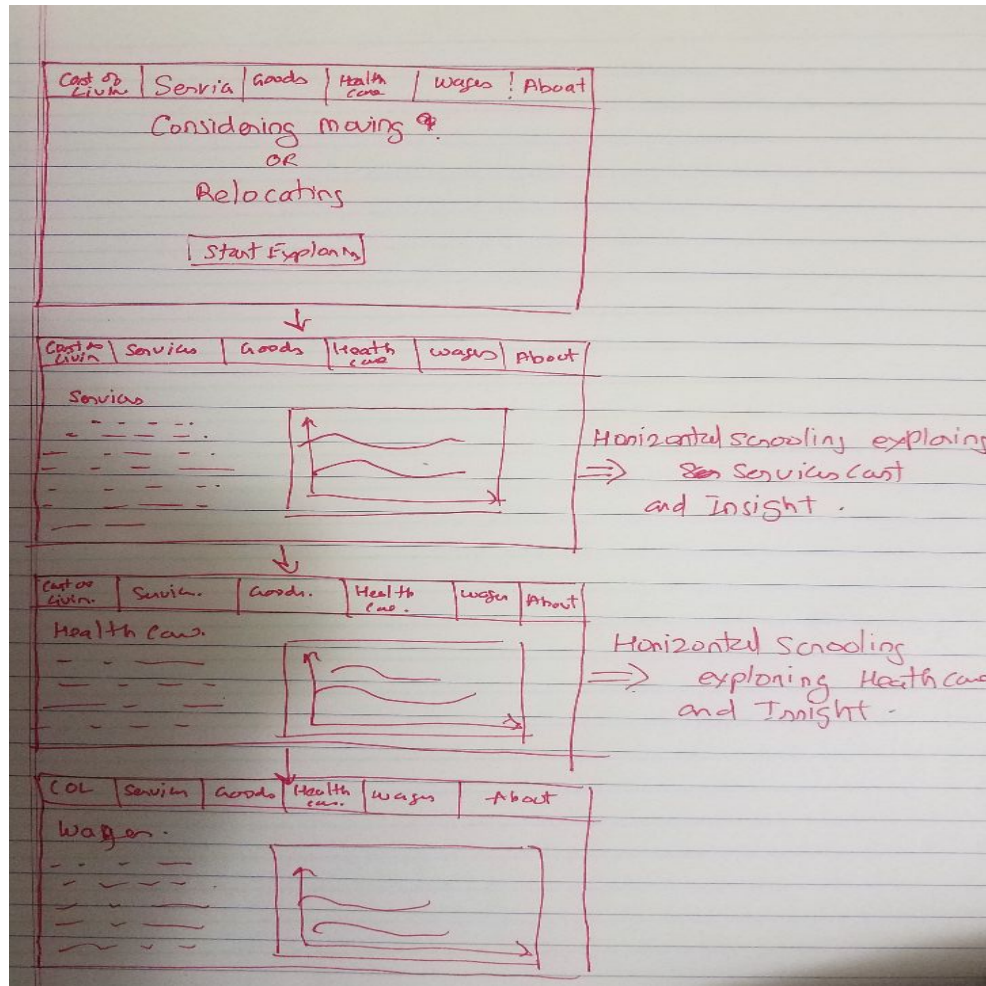 Cost of Livin Services Goods Health Care Wages About
Considering moving ?
OR
Relocating
Start Exploring
Cost of Livin Services Goods Heath care wages About
Services
Horizontal scrooling exploring
Services Cost
and Insight .
Cost of Livin. Servic. Goods. Health Care. Wages About
Health Care.
Horizontal Scrooling
exploring Heath care
and Insight .
COL Services Goods Health care. Wages About
Wages.